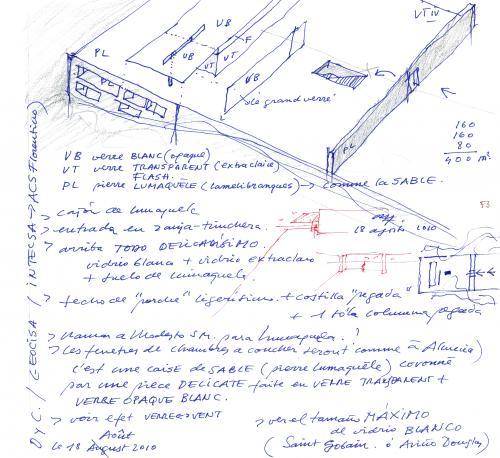 VB
VT IV
F
PL
VB
VT
VB
PL
"le grand verre"
PL
160
160
80
400 m²
VB verre BLANC (opaque)
VT verre TRANSPARENT (extraclaire)
FLASH.
PL pierre LUMAQUÈLE (lamelibranques) → comme la SABLE.
53
> cajón de lumaquela
> entrada en zanja-trinchera.
18 agosto 2010
> arriba TODO DELICADÍSIMO.
vidrio blanco + vidrio extraclaro
+ suelo de lumaquela.
> techo de "porche" ligerísimo. + costilla "pegada"
+ 1 sola columna pegada
> llamar a Modesto S.M. para lumaquela.
> les fenetres de chambres a coucher seront comme à Almeria)
c'est une caisse de SABLE (pierre lumaquèle) couronné
par une pièce DELICATE faite en VERRE TRANSPARENT +
VERRE OPAQUE BLANC.
> voir efet VERRE
> ver el tamaño MÁXIMO
de vidrio BLANCO
(Saint Gobain. ó Ariño Douglas)
Août
le 18 August 2010
D y C. / GEOCISA / INTECSA → ACS Florentino)